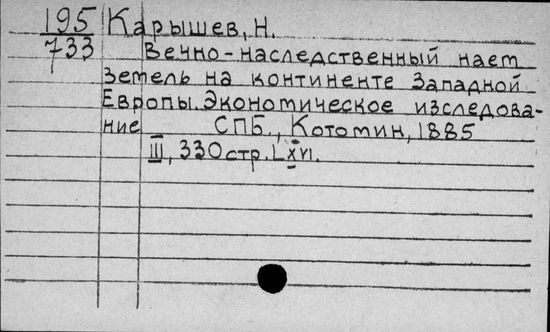 195 Карышев, Н.
733 Вечно-наследственный наем
земель на континенте Западной
Европы. Экономическое изследова-
ние СПБ., Котомин, 1885
III, 330 стр. LXVI.